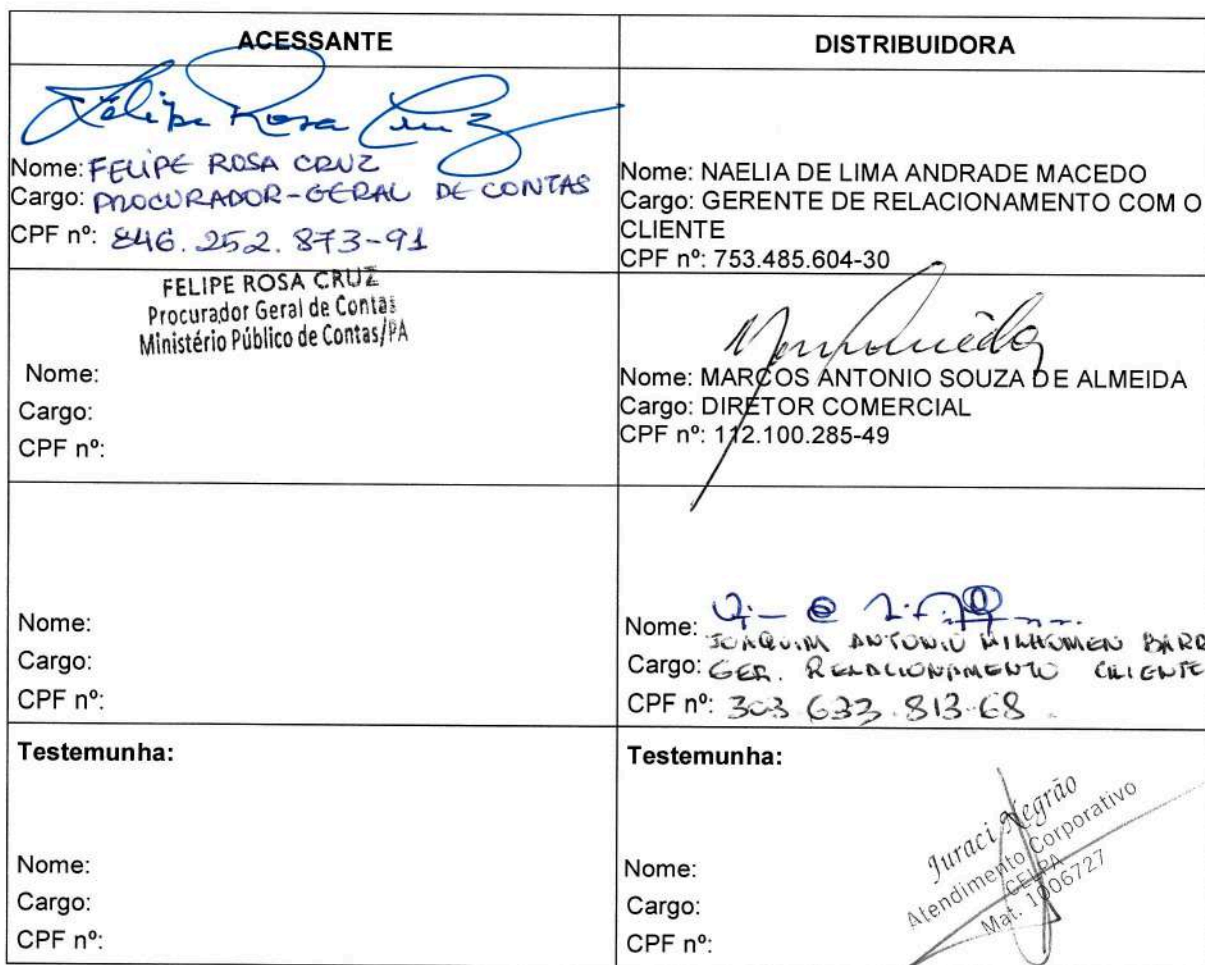 ACESSANTE
DISTRIBUIDORA
Felipe Rosa Cruz
Nome: FELIPE ROSA CRUZ
Cargo: PROCURADOR-GERAL DE CONTAS
CPF nº: 846.252.873-91
Nome: NAELIA DE LIMA ANDRADE MACEDO
Cargo: GERENTE DE RELACIONAMENTO COM O
CLIENTE
CPF nº: 753.485.604-30
FELIPE ROSA CRUZ
Procurador Geral de Contas
Ministério Público de Contas/PA
Nome:
Cargo:
CPF nº:
Nome: MARCOS ANTONIO SOUZA DE ALMEIDA
Cargo: DIRETOR COMERCIAL
CPF nº: 112.100.285-49
Nome:
Cargo:
CPF nº:
Nome: JOAQUIM ANTONIO MILHOMEN BARR
Cargo: GER. RELACIONAMENTO CLIENTE
CPF nº: 303 633.813-68
Testemunha:
Nome:
Cargo:
CPF nº:
Testemunha:
Juraci Negrão
Atendimento Corporativo
CELPA
Mat. 1006727
Nome:
Cargo:
CPF nº: